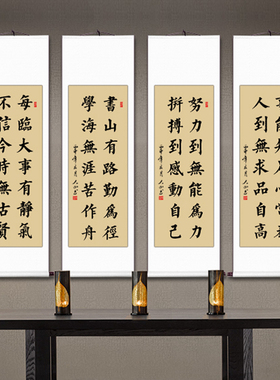 人到無求品自高
努力到無能為力
拼搏到感動自己
書山有路勤為徑
學海無涯苦作舟
每臨大事有靜氣
不信今時無古賢